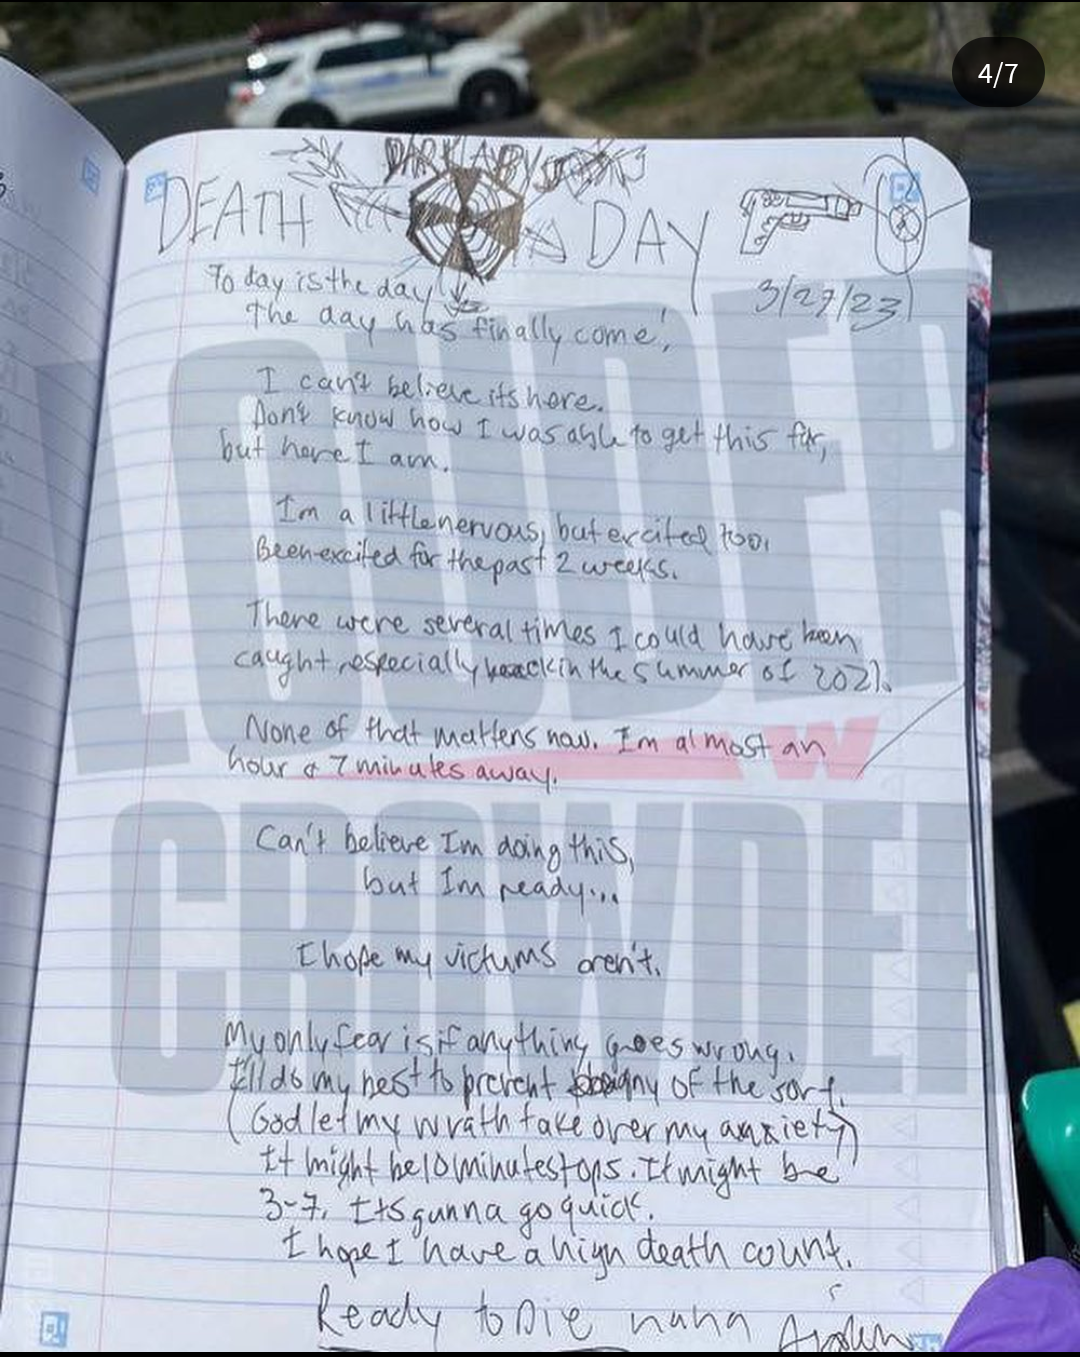 4/7
DARK ABYSS
DEATH DAY
3/27/23
Today is the day
The day has finally come!
I can't believe its here.
Don't know how I was able to get this far,
but here I am.
Im a little nervous, but excited too.
Been excited for the past 2 weeks.
There were several times I could have been
caught, especially back in the summer of 2021.
None of that matters now. Im almost an
hour & 7 minutes away.
Can't believe Im doing this,
but Im ready...
I hope my victums aren't.
My only fear is if anything goes wrong.
I'll do my best to prevent any of the sort.
(God let my wrath take over my anxiety)
It might be 10 minutes tops. It might be
3-7. Its gunna go quick.
I hope I have a high death count.
Ready to Die haha
LOUDER
W
CROWDER